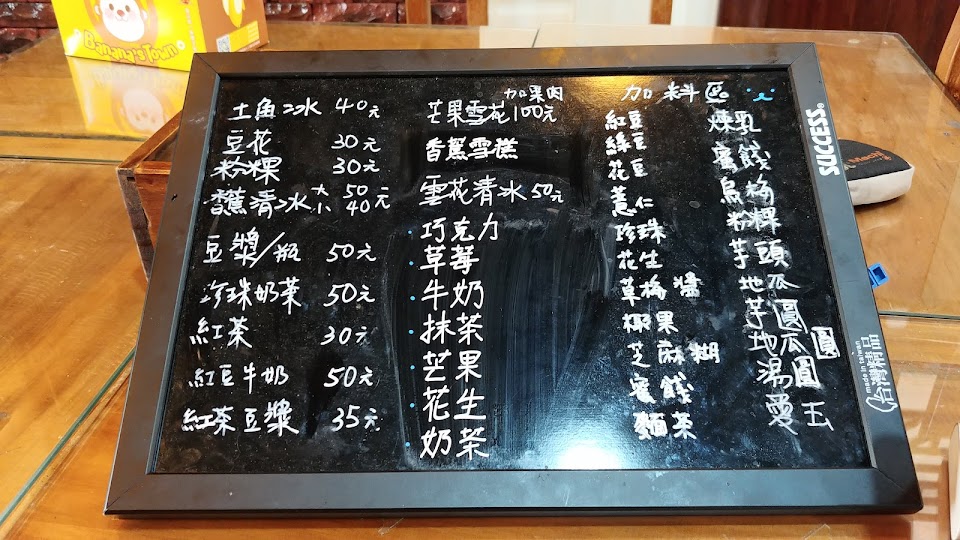 Banana's Town
土角冰 40元
豆花 30元
粉粿 30元
香蕉清冰 大 50 小 40元
豆漿/瓶 50元
珍珠奶茶 50元
紅茶 30元
紅豆牛奶 50元
紅茶豆漿 35元
加果肉
芒果雪花100元
香蕉雪糕
雪花清冰50元
巧克力
草莓
牛奶
抹茶
芒果
花生
奶茶
加料區
紅豆
綠豆
花豆
薏仁
珍珠
花生
草梅醬
椰果
芝麻糊
蜜餞
麵茶
煉乳
蜜餞
烏梅
粉粿
芋頭
地瓜
芋圓
地瓜圓
湯圓
愛玉
SUCCESS®
made in taiwan
台灣製造